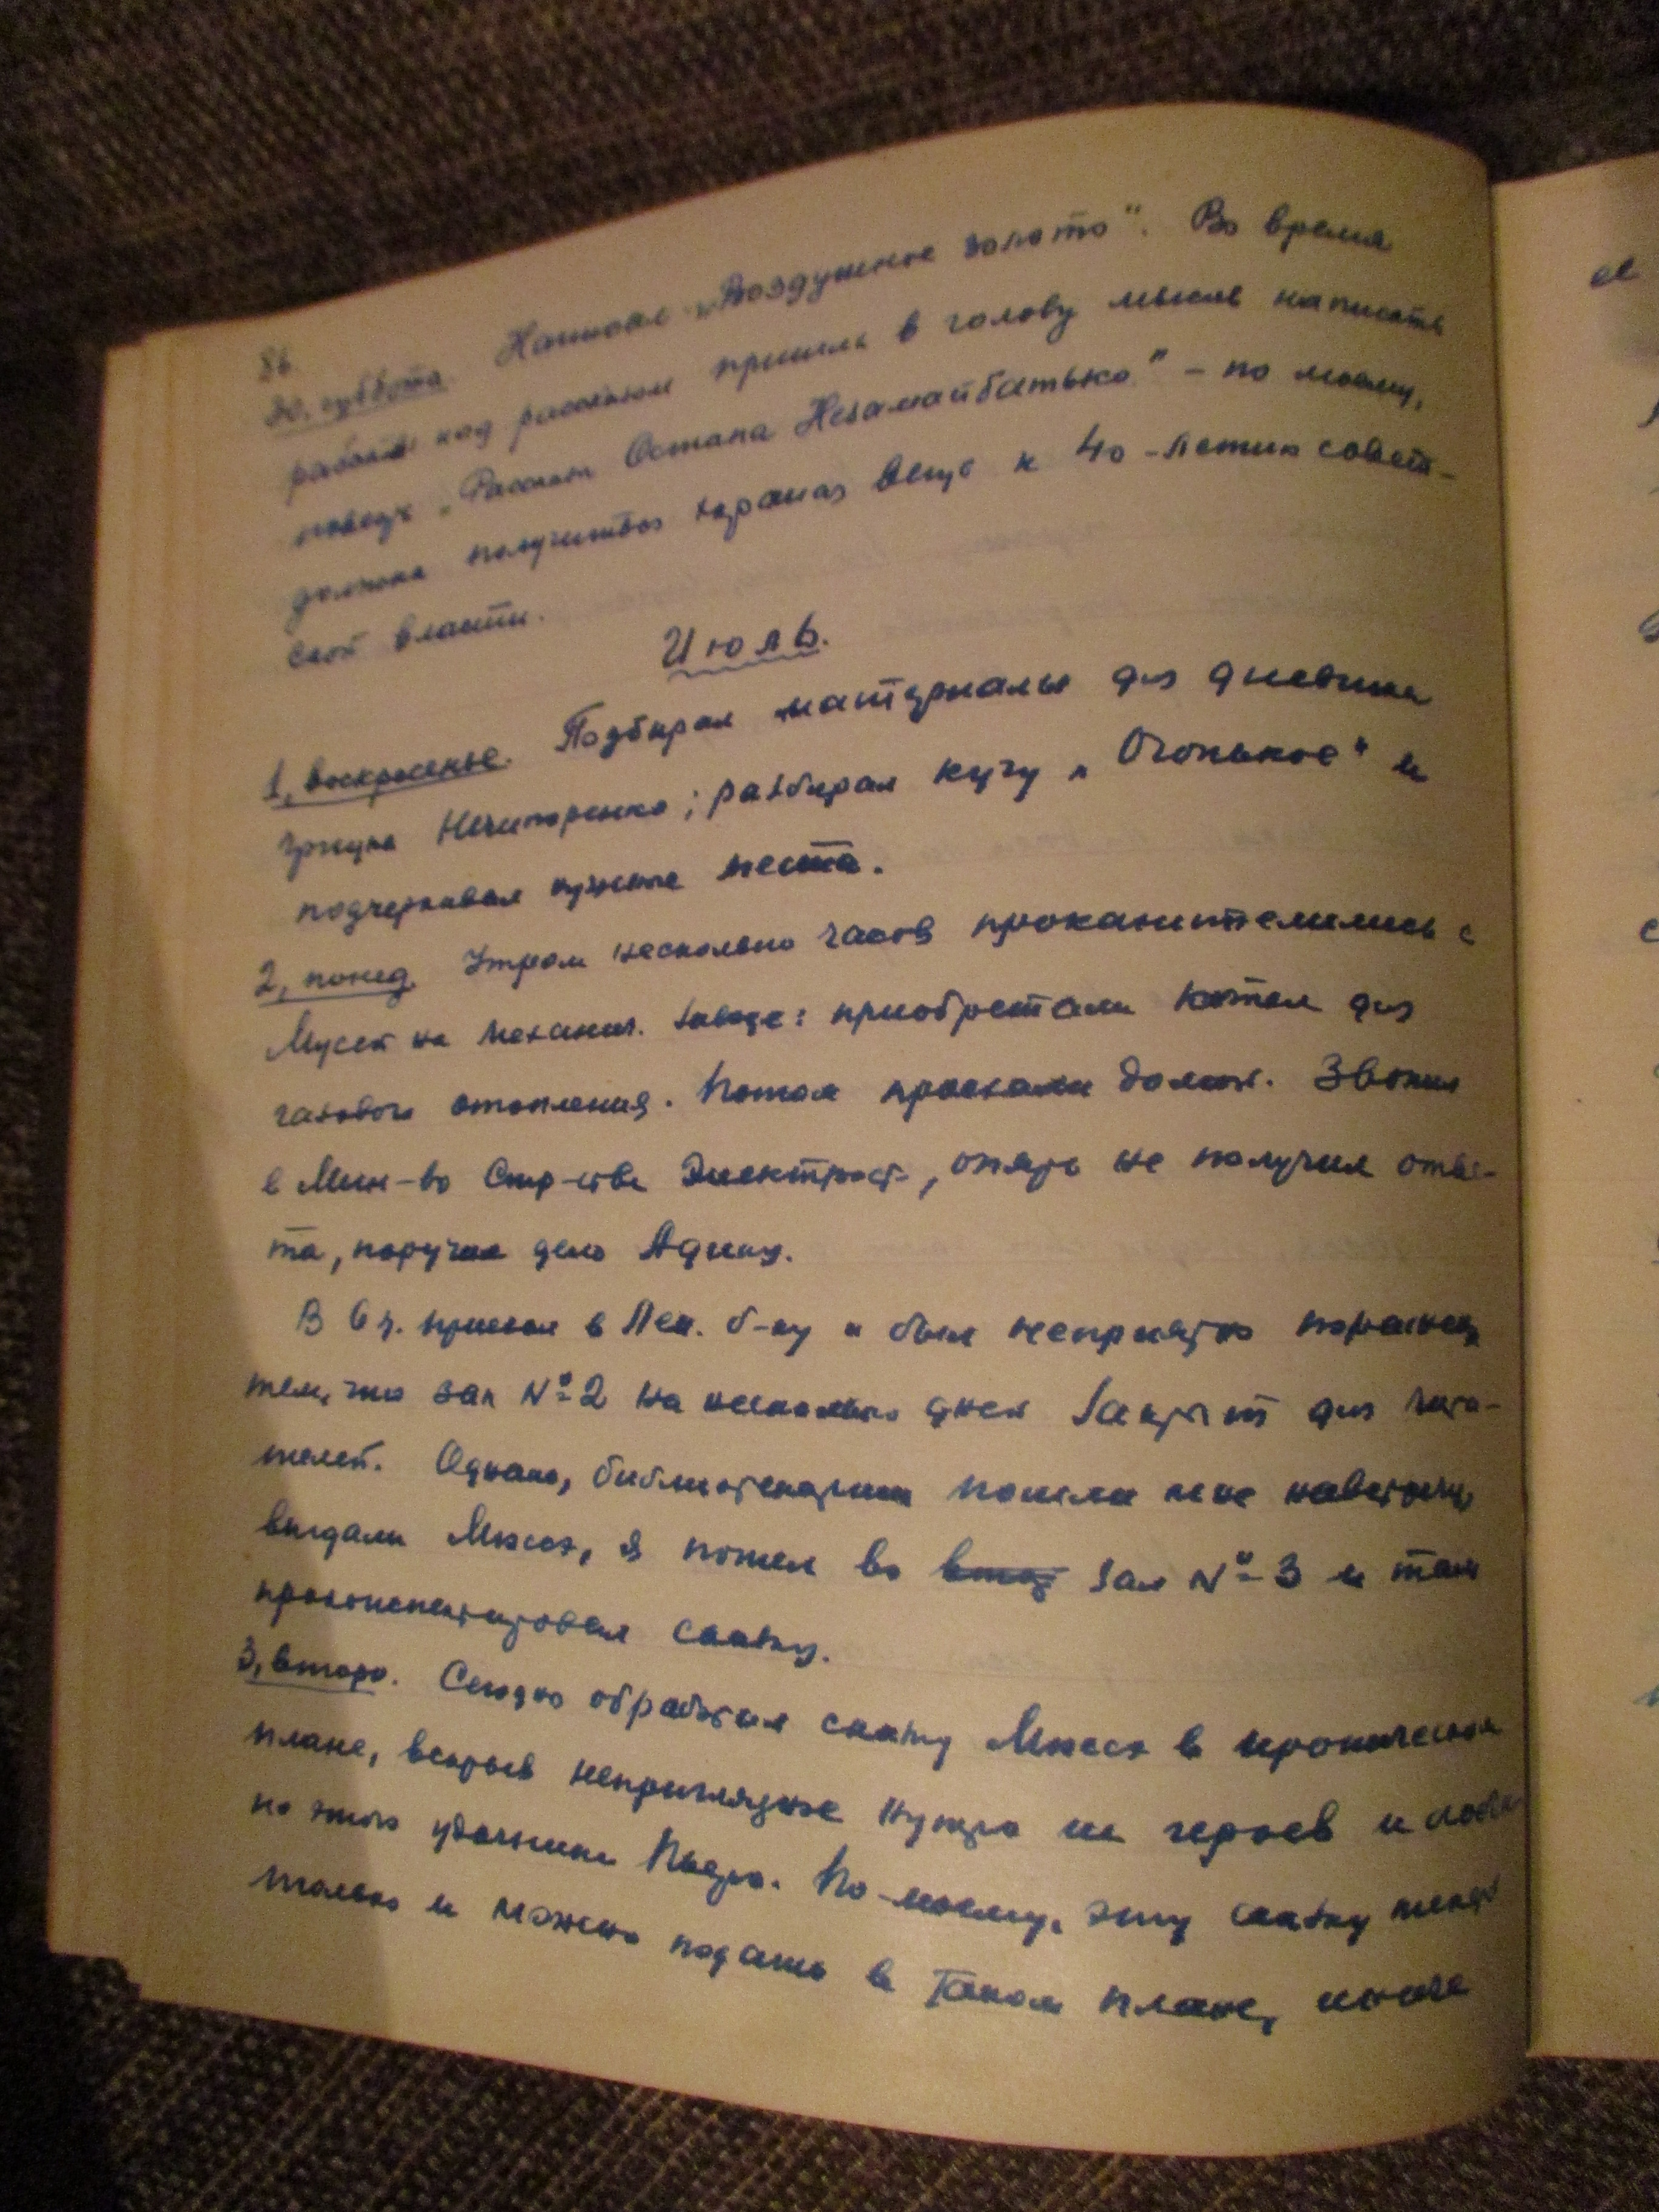 86.
30, суббота. Написал „Воздушное золото". Во время
работы над рассказом пришла в голову мысль написать
повесть „Рассказы Остапа Незамайбатько" – по моему,
должна получиться хорошая вещь к 40-летию совет-
ской власти.
Июль.
1, воскресенье. Подбирал материалы для дневника
Грицка Нечипоренко; разбирал кучу „Огоньков" и
подчеркивал нужные места.
2, понед. Утром несколько часов проканителились с
Мусей на механич. заводе: приобретали котел для
газового отопления. Потом поехали домой. Звонил
в Мин-во Стр-ства Электрост., опять не получил отве-
та, поручил дело Адику.
В 6 ч. приехал в Лен. б-ку и был неприятно поражен
тем, что зал № 2 на несколько дней закрыт для чита-
телей. Однако, библиотекарши пошли мне навстречу,
выдали Мюссэ, я пошел во зал № 3 и там
проконспектировал сказку.
3, втор. Сегодня обработал сказку Мюссэ в ироническом
плане, вскрыв неприглядное нутро ее героев и
по этого удачника Пьера. По-моему, эту сказку
только и можно подать в таком плане, иначе